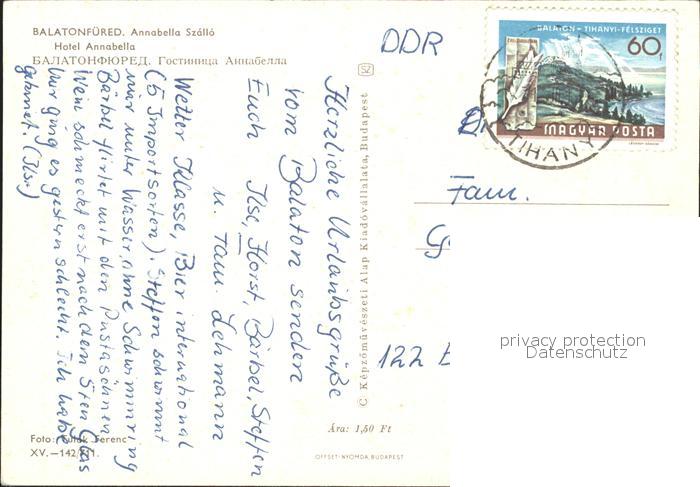 BALATONFÜRED. Annabella Szálló
Hotel Annabella
БАЛАТОНФЮРЕД. Гостиница Аннабелла
Herzliche Urlaubsgrüße
vom Balaton senden
Euch Ilse, Horst, Bärbel, Steffen
u. Fam. Lehmann
Wetter Klasse, Bier international
(5 Importsorten). Steffen schwimmt
nur unter Wasser, ohne Schwimmring
Bärbel flirtet mit den Pustaschönen
Wein schmeckt erst nach dem 5ten Glas
Nur ging es gestern schlecht. Ich habe
getanzt. (Ilse)
Foto: Tulok Ferenc
XV.—142/711.
SZ
© Képzőművészeti Alap Kiadóvállalata, Budapest
Ára: 1,50 Ft
OFFSET-NYOMDA, BUDAPEST
DDR
BALATON - TIHANYI-FÉLSZIGET
60f
MAGYAR POSTA
TIHANY
Fam.
122
privacy protection
Datenschutz